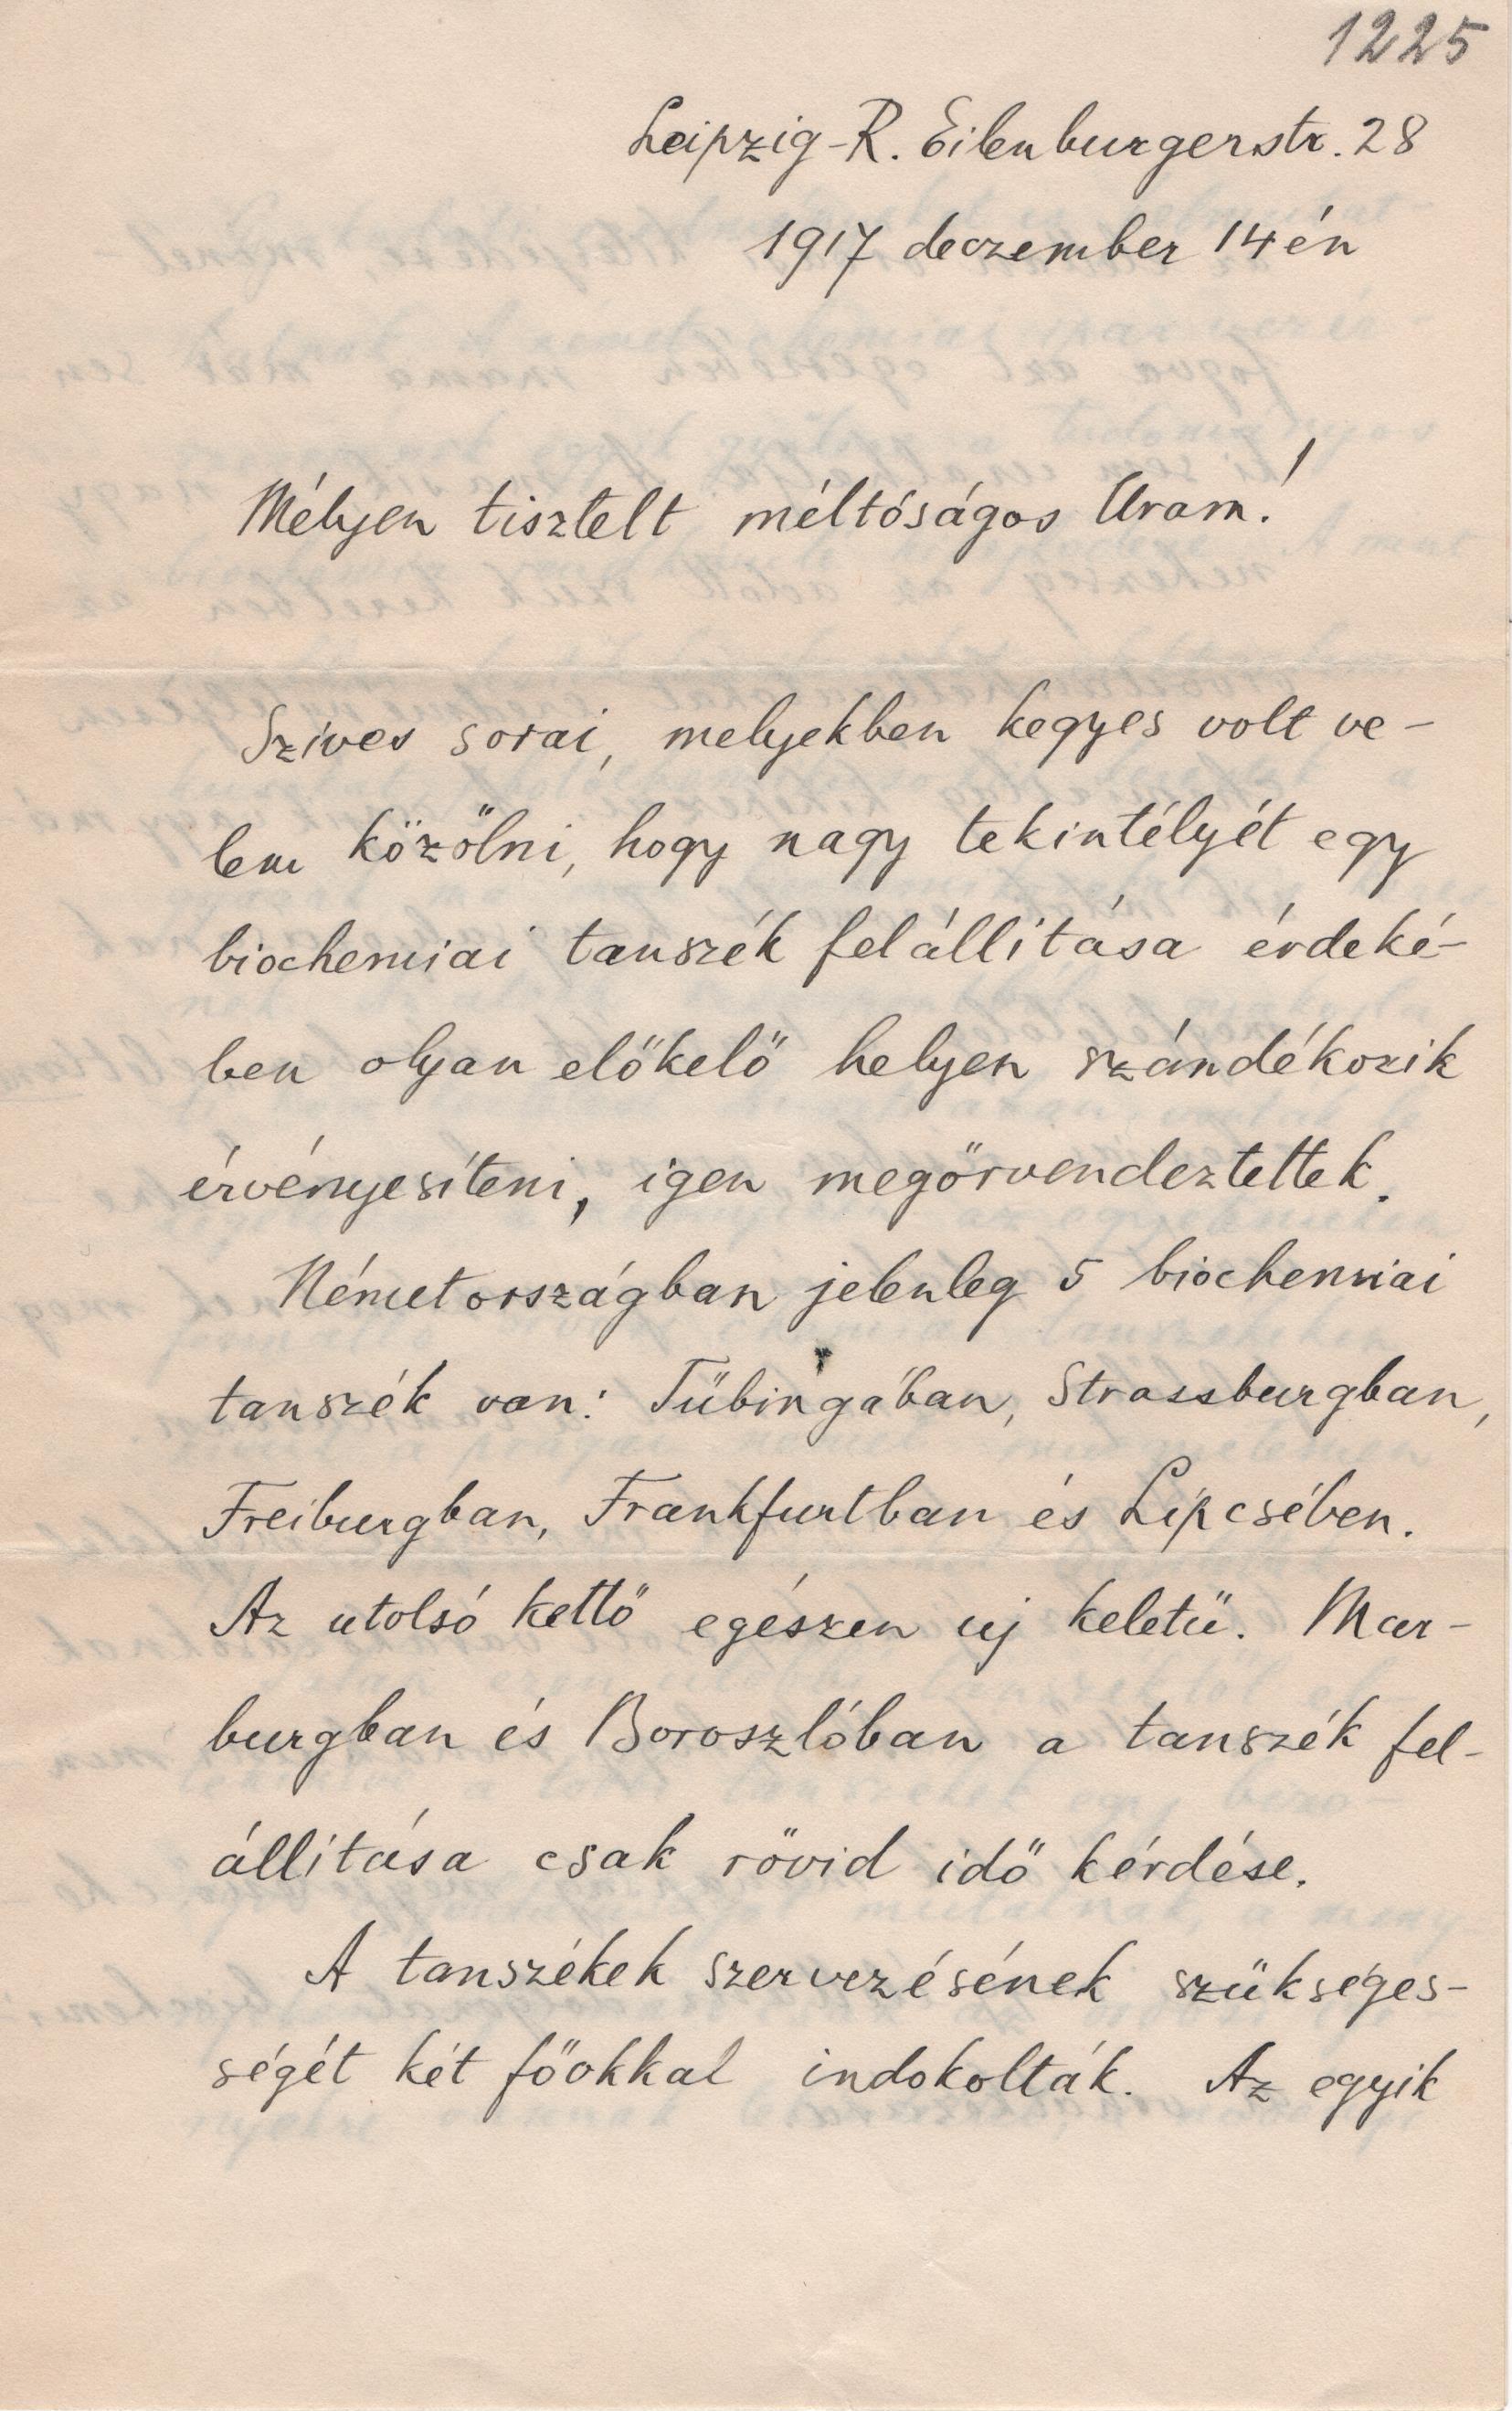 1225
Leipzig-R. Eilenburgerstr. 28
1917 deczember 14én
Mélyen tisztelt méltóságos Uram!
Szives sorai, melyekben kegyes volt ve-
lem közölni, hogy nagy tekintélyét egy
biochemiai tanszék felállitása érdeké-
ben olyan előkelő helyen szándékozik
érvényesíteni, igen megörvendeztettek.
Németországban jelenleg 5 biochemiai
tanszék van: Tübingában, Strassburgban,
Freiburgban, Frankfurtban és Lipcsében.
Az utolsó kettő egészen uj keletü. Mar-
burgban és Boroszlóban a tanszék fel-
állitása csak rövid idő kérdése.
A tanszékek szervezésének szükséges-
ségét két főokkal indokolták. Az egyik